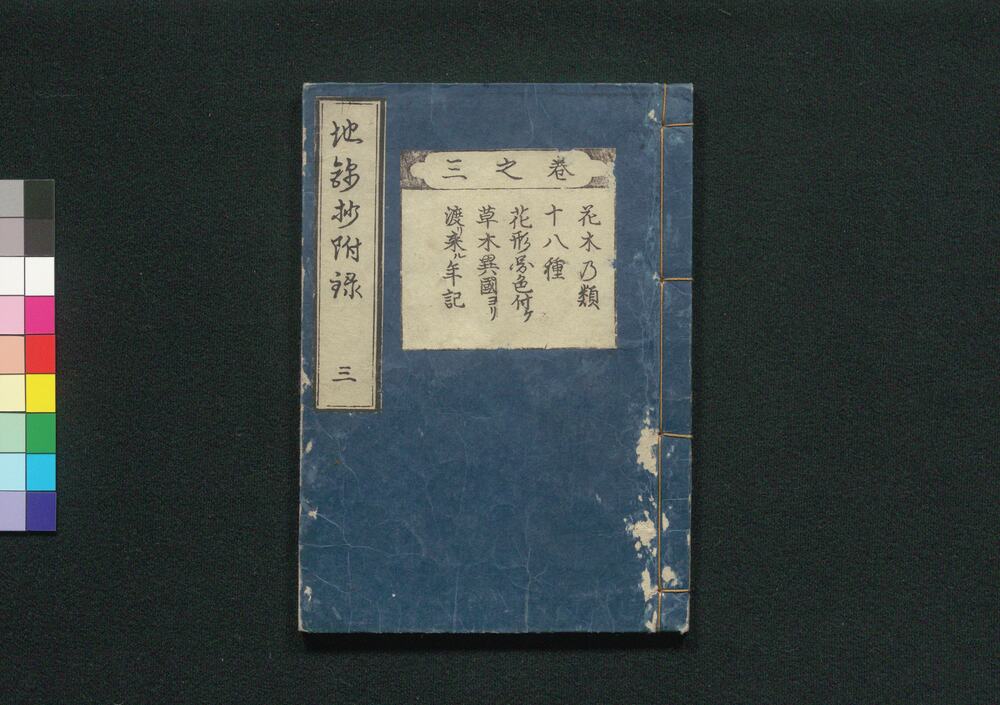 巻之三
花木乃類
十八種
花形図色付ケ
草木異國ヨリ
渡リ来ル年記
地錦抄附録 三